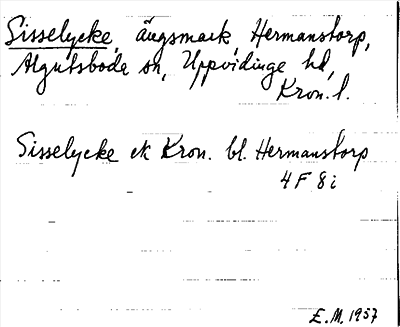 Sisselycke, ängsmark, Hermanstorp,
Algutsboda sn, Uppvidinge hd,
Kron. l.
Sisselycke ek Kron. bl. Hermanstorp
4 F 8 i
E.M. 1957